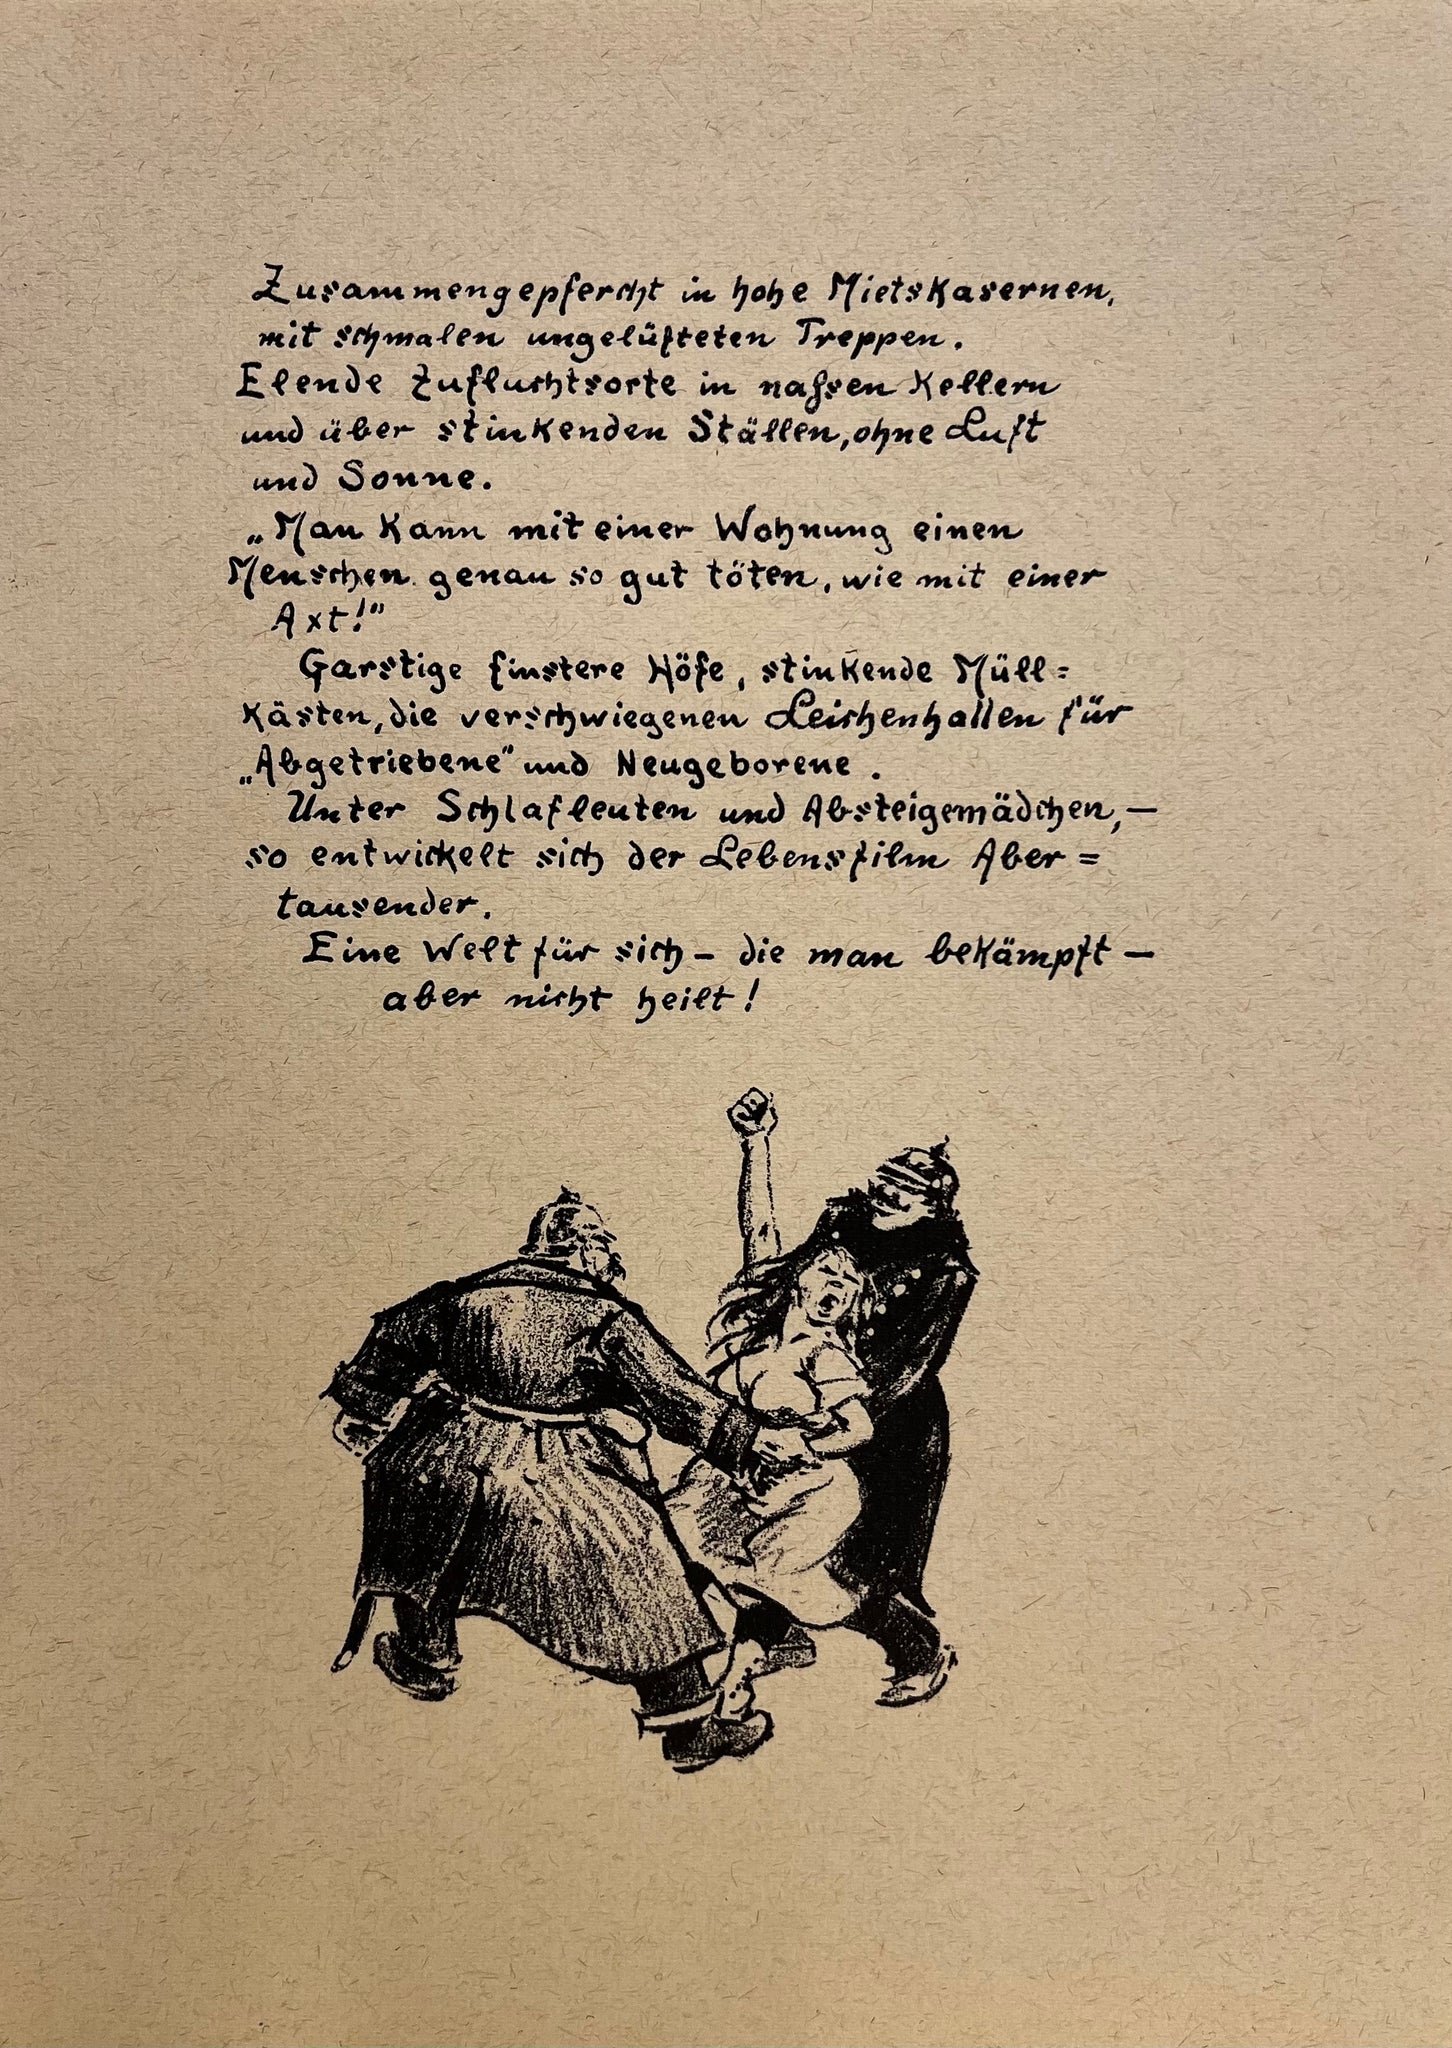 Zusammengepfercht in hohe Mietskasernen,
mit schmalen ungelüfteten Treppen.
Elende Zufluchtsorte in naſsen Kellern
und über stinkenden Ställen, ohne Luft
und Sonne.
„Man kann mit einer Wohnung einen
Menschen genau so gut töten, wie mit einer
Axt!”
Garstige finstere Höfe, stinkende Müll=
kästen, die verschwiegenen Leichenhallen für
„Abgetriebene” und Neugeborene.
Unter Schlafleuten und Absteigemädchen, —
so entwickelt sich der Lebensfilm Aber=
tausender.
Eine Welt für sich – die man bekämpft —
aber nicht heilt!